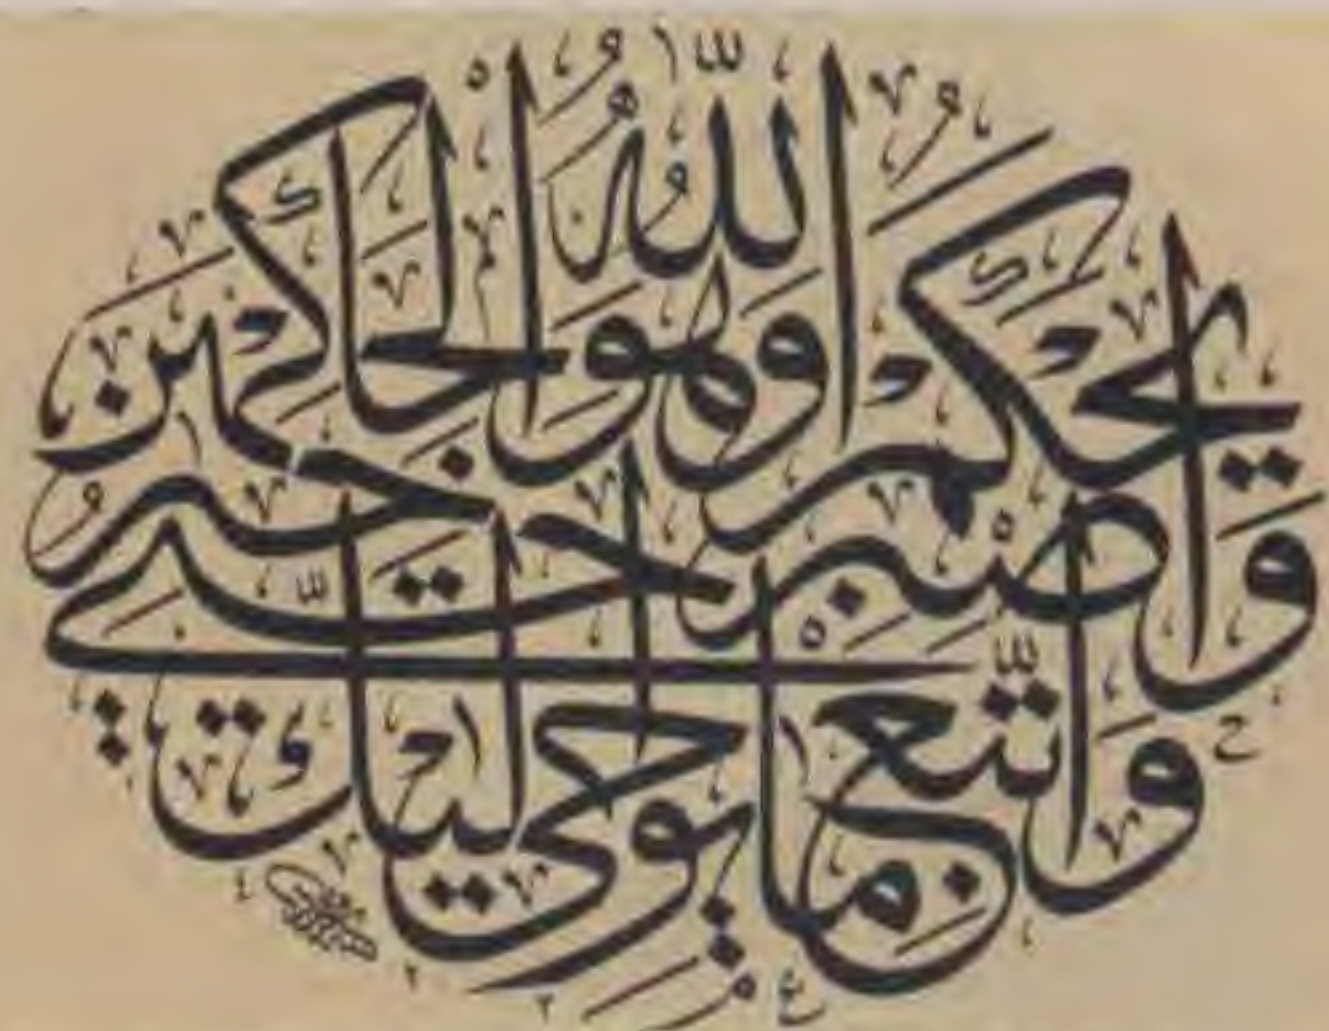 وَاتَّبِعْ مَا يُوحَى إِلَيْكَ
وَاصْبِرْ حَتَّى
يَحْكُمَ اللّٰهُ وَهُوَ خَيْرُ الْحَاكِمِينَ